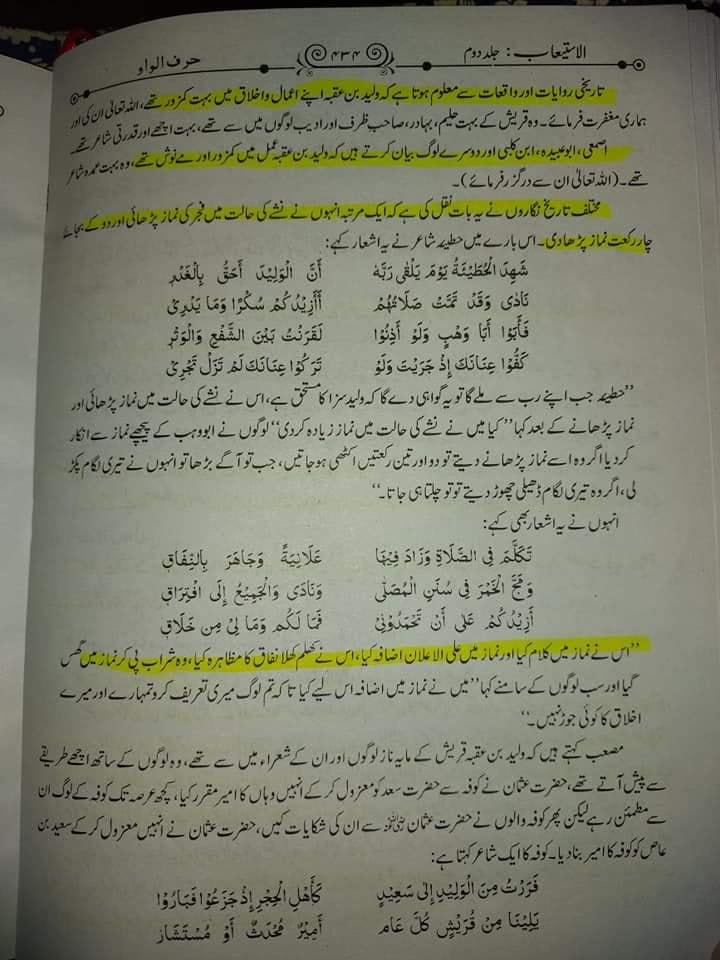 الاستیعاب : جلد دوم ۴۳۴ حرف الواو
تاریخی روایات اور واقعات سے معلوم ہوتا ہے کہ ولید بن عقبہ اپنے اعمال و اخلاق میں بہت کمزور تھے، اللہ تعالیٰ ان کی اور
ہماری مغفرت فرمائے۔ وہ قریش کے بہت حلیم، بہادر، صاحب ظرف اور ادیب لوگوں میں سے تھے، بہت اچھے اور قدرتی شاعر تھے۔
اصمعی، ابو عبیدہ، ابن کلبی اور دوسرے لوگ بیان کرتے ہیں کہ ولید بن عقبہ عمل میں کمزور اور مے نوش تھے، وہ بہت عمدہ شاعر
تھے۔ (اللہ تعالیٰ ان سے درگزر فرمائے)۔
مختلف تاریخ نگاروں نے یہ بات نقل کی ہے کہ ایک مرتبہ انہوں نے نشے کی حالت میں فجر کی نماز پڑھائی اور دو کے بجائے
چار رکعت نماز پڑھا دی۔ اس بارے میں حطیئہ شاعر نے یہ اشعار کہے:
شَهِدَ الْحُطَيْئَةُ يَوْمَ يَلْقٰى رَبَّهٗ أَنَّ الْوَلِيْدَ أَحَقُّ بِالْغَدْرِ
نَادٰى وَقَدْ تَمَّتْ صَلَاتُهُمْ أَأَزِيْدُكُمْ سُكْرًا وَمَا يَدْرِيْ
فَأَبَوْا أَبَا وَهْبٍ وَلَوْ أَذِنُوْا لَقَرَنْتُ بَيْنَ الشَّفْعِ وَالْوَتْرِ
كَفُّوْا عِنَانَكَ إِذْ جَرَيْتَ وَلَوْ تَرَكُوْا عِنَانَكَ لَمْ تَزَلْ تَجْرِيْ
’’حطیئہ جب اپنے رب سے ملے گا تو یہ گواہی دے گا کہ ولید سزا کا مستحق ہے، اس نے نشے کی حالت میں نماز پڑھائی اور
نماز پڑھانے کے بعد کہا ’’کیا میں نے نشے کی حالت میں نماز زیادہ کر دی‘‘ لوگوں نے ابو وہب کے پیچھے نماز سے انکار
کر دیا اگر وہ اسے نماز پڑھانے دیتے تو دو اور تین رکعتیں اکٹھی ہو جاتیں، جب تو آگے بڑھا تو انہوں نے تیری لگام پکڑ
لی، اگر وہ تیری لگام ڈھیلی چھوڑ دیتے تو تو چلتا ہی جاتا۔‘‘
انہوں نے یہ اشعار بھی کہے:
تَكَلَّمَ فِي الصَّلَاةِ وَزَادَ فِيْهَا عَلَانِيَةً وَجَاهَرَ بِالنِّفَاقِ
وَمَجَّ الْخَمْرَ فِيْ سُنَنِ الْمُصَلّٰى وَنَادٰى وَالْجَمِيْعُ إِلَى افْتِرَاقِ
أَزِيْدُكُمْ عَلٰى أَنْ تَحْمَدُوْنِيْ فَمَا لَكُمْ وَمَا لِيْ مِنْ خَلَاقِ
’’اس نے نماز میں کلام کیا اور نماز میں علی الاعلان اضافہ کیا، اس نے کھلم کھلا نفاق کا مظاہرہ کیا، وہ شراب پی کر نماز میں گھس
گیا اور سب لوگوں کے سامنے کہا ’’میں نے نماز میں اضافہ اس لیے کیا تاکہ تم لوگ میری تعریف کرو تمہارے اور میرے
اخلاق کا کوئی جوڑ نہیں۔‘‘
مصعب کہتے ہیں کہ ولید بن عقبہ قریش کے مایہ ناز لوگوں اور ان کے شعراء میں سے تھے، وہ لوگوں کے ساتھ اچھے طریقے
سے پیش آتے تھے، حضرت عثمان نے کوفہ سے حضرت سعد کو معزول کر کے انہیں وہاں کا امیر مقرر کیا، کچھ عرصہ تک کوفہ کے لوگ ان
سے مطمئن رہے لیکن پھر کوفہ والوں نے حضرت عثمان رضی اللہ عنہ سے ان کی شکایات کیں، حضرت عثمان نے انہیں معزول کر کے سعید بن
عاص کو کوفہ کا امیر بنا دیا۔ کوفہ کا ایک شاعر کہتا ہے:
فَرَرْتُ مِنَ الْوَلِيْدِ إِلٰى سَعِيْدٍ كَأَهْلِ الْحِجْرِ إِذْ جَزَعُوْا فَبَارُوْا
يَلِيْنَا مِنْ قُرَيْشٍ كُلَّ عَامٍ أَمِيْرٌ مُحْدَثٌ أَوْ مُسْتَشَارُ